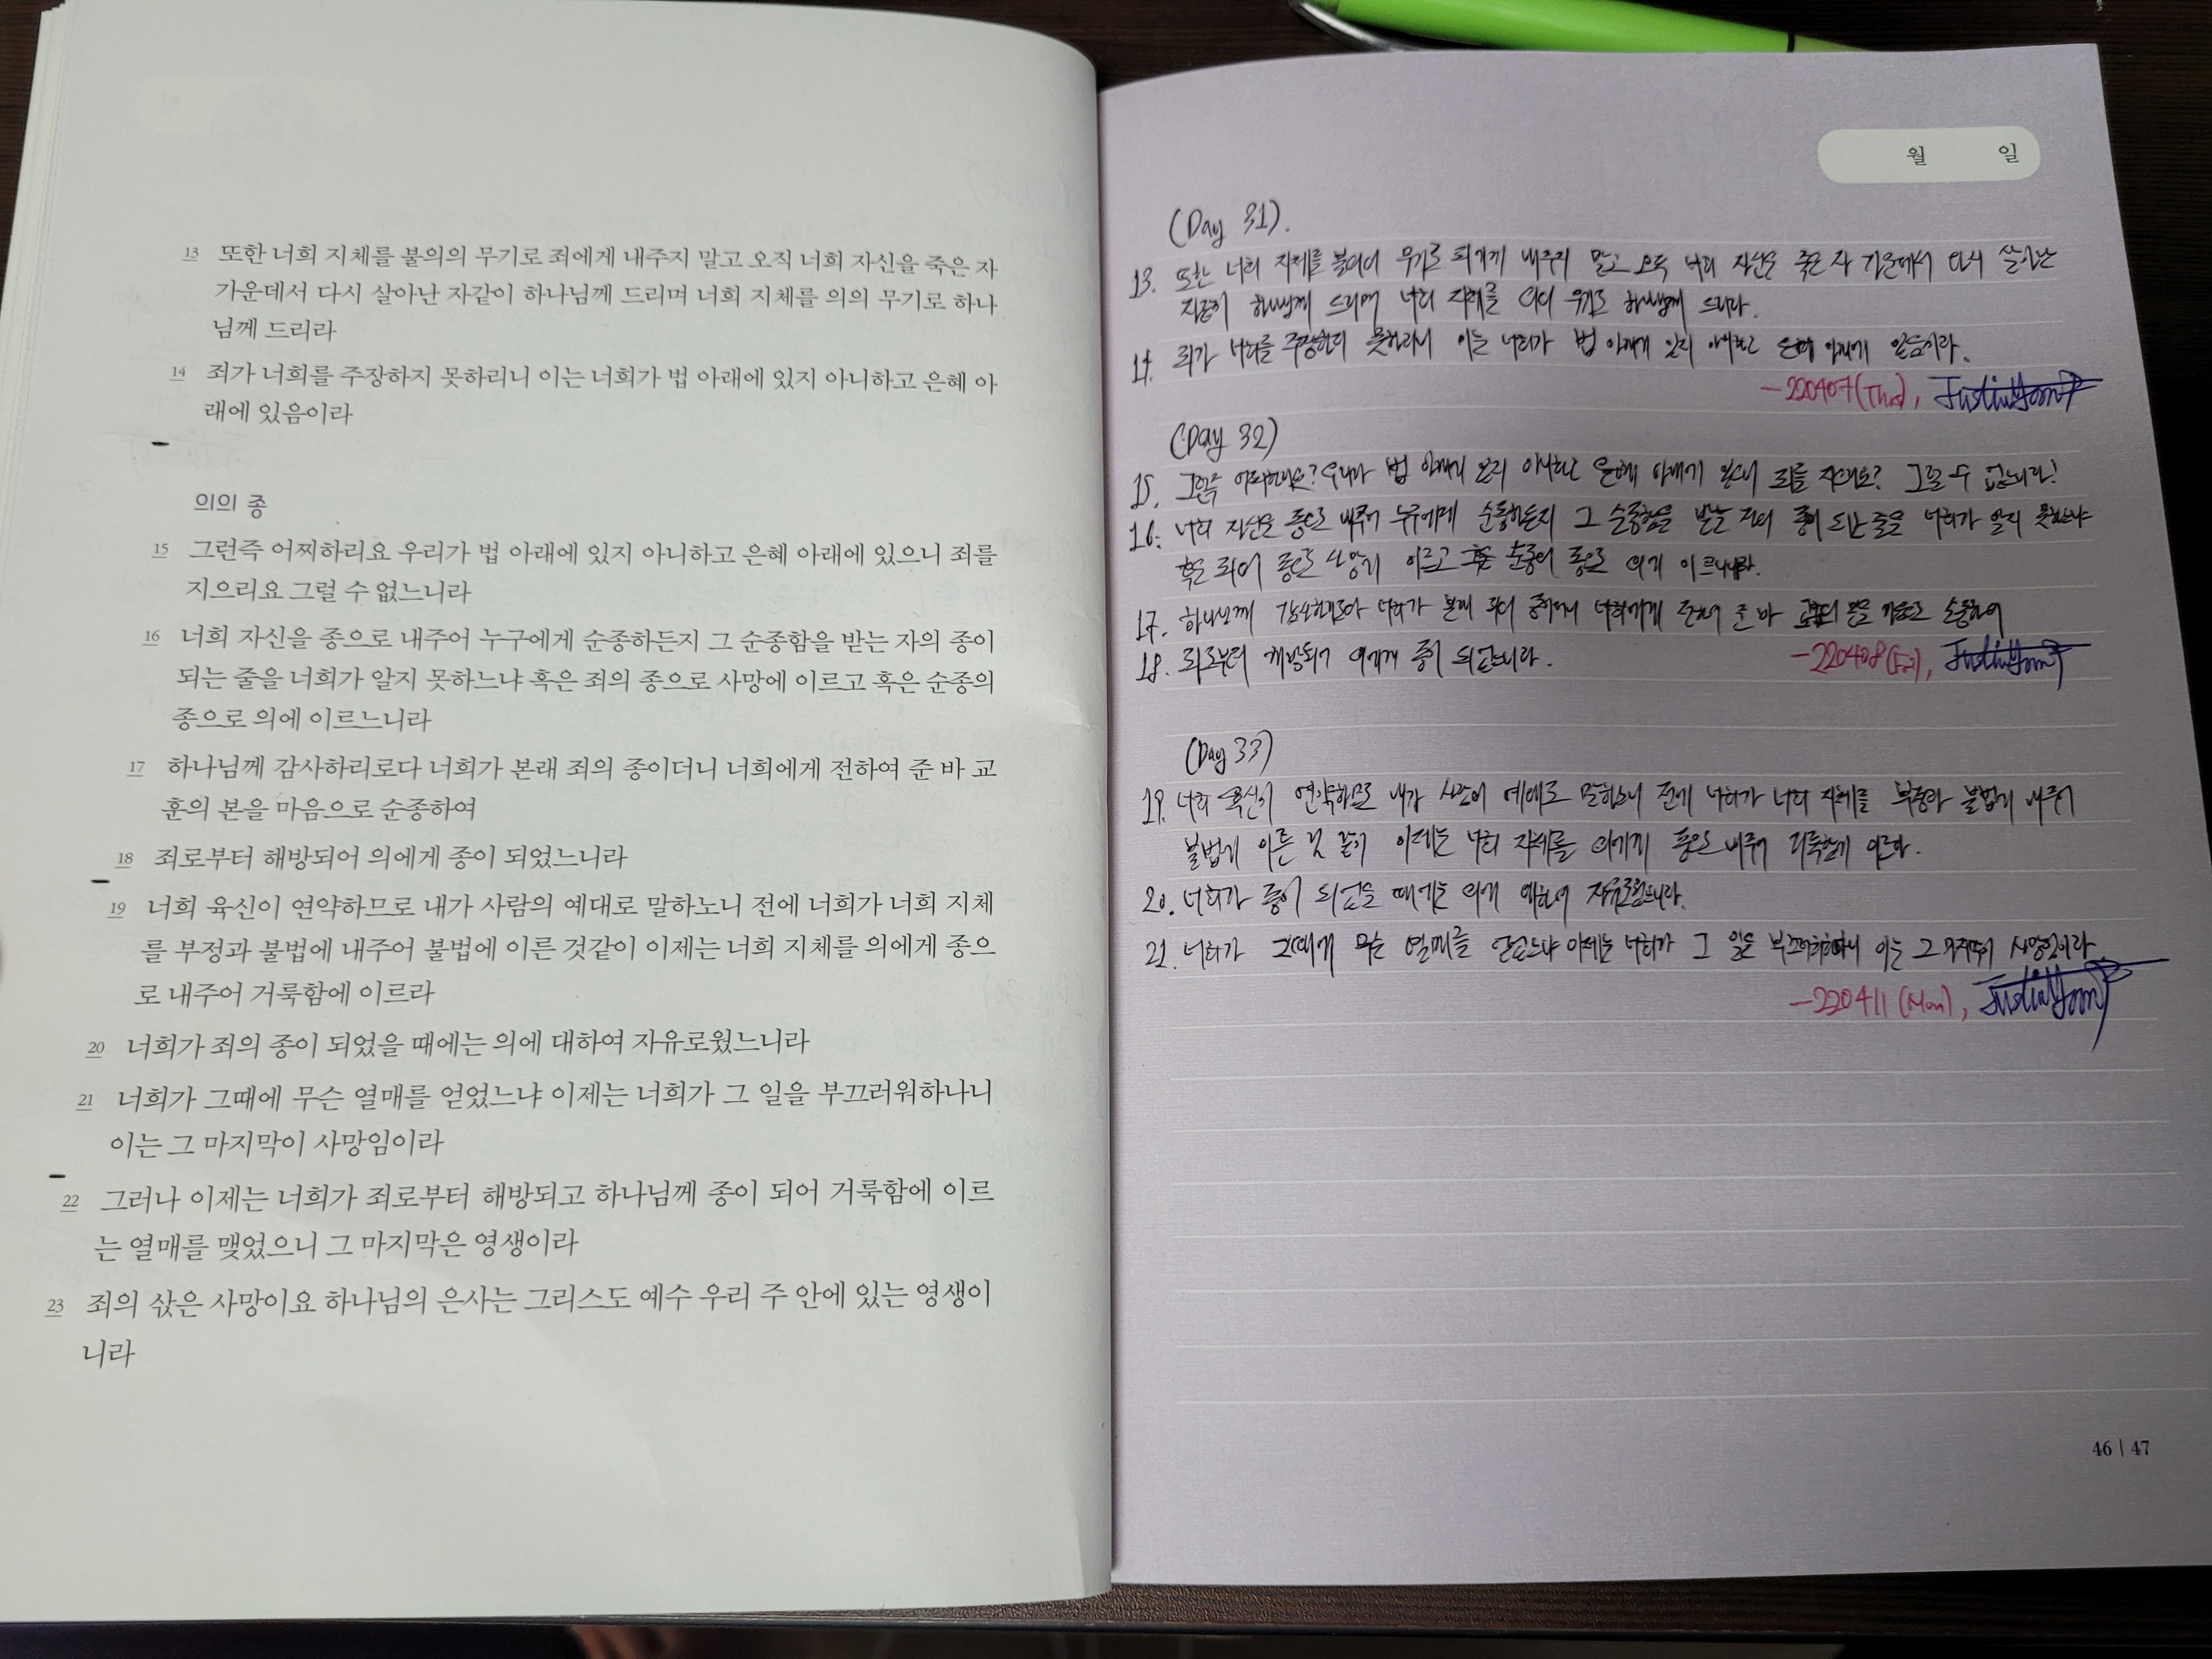 13 또한 너희 지체를 불의의 무기로 죄에게 내주지 말고 오직 너희 자신을 죽은 자
가운데서 다시 살아난 자같이 하나님께 드리며 너희 지체를 의의 무기로 하나
님께 드리라
14 죄가 너희를 주장하지 못하리니 이는 너희가 법 아래에 있지 아니하고 은혜 아
래에 있음이라
의의 종
15 그런즉 어찌하리요 우리가 법 아래에 있지 아니하고 은혜 아래에 있으니 죄를
지으리요 그럴 수 없느니라
16 너희 자신을 종으로 내주어 누구에게 순종하든지 그 순종함을 받는 자의 종이
되는 줄을 너희가 알지 못하느냐 혹은 죄의 종으로 사망에 이르고 혹은 순종의
종으로 의에 이르느니라
17 하나님께 감사하리로다 너희가 본래 죄의 종이더니 너희에게 전하여 준 바 교
훈의 본을 마음으로 순종하여
18 죄로부터 해방되어 의에게 종이 되었느니라
19 너희 육신이 연약하므로 내가 사람의 예대로 말하노니 전에 너희가 너희 지체
를 부정과 불법에 내주어 불법에 이른 것같이 이제는 너희 지체를 의에게 종으
로 내주어 거룩함에 이르라
20 너희가 죄의 종이 되었을 때에는 의에 대하여 자유로웠느니라
21 너희가 그때에 무슨 열매를 얻었느냐 이제는 너희가 그 일을 부끄러워하나니
이는 그 마지막이 사망임이라
22 그러나 이제는 너희가 죄로부터 해방되고 하나님께 종이 되어 거룩함에 이르
는 열매를 맺었으니 그 마지막은 영생이라
23 죄의 삯은 사망이요 하나님의 은사는 그리스도 예수 우리 주 안에 있는 영생이
니라
월 일
(Day 31).
13. 또한 너희 지체를 불의의 무기로 죄에게 내주지 말고 오직 너희 자신을 죽은 자 가운데서 다시 살아난
자같이 하나님께 드리며 너희 지체를 의의 무기로 하나님께 드리라.
14. 죄가 너희를 주장하지 못하리니 이는 너희가 법 아래에 있지 아니하고 은혜 아래에 있음이라.
-220407(Thu), JustinYoon
(Day 32)
15. 그런즉 어찌하리요? 우리가 법 아래에 있지 아니하고 은혜 아래에 있으니 죄를 지으리요? 그럴 수 없느니라!
16. 너희 자신을 종으로 내주어 누구에게 순종하든지 그 순종함을 받는 자의 종이 되는 줄을 너희가 알지 못하느냐
혹은 죄의 종으로 사망에 이르고 혹은 순종의 종으로 의에 이르느니라.
17. 하나님께 감사하리로다 너희가 본래 죄의 종이더니 너희에게 전하여 준 바 교훈의 본을 마음으로 순종하여
18. 죄로부터 해방되어 의에게 종이 되었느니라.
-220408(Fri), JustinYoon
(Day 33)
19. 너희 육신이 연약하므로 내가 사람의 예대로 말하노니 전에 너희가 너희 지체를 부정과 불법에 내주어
불법에 이른 것 같이 이제는 너희 지체를 의에게 종으로 내주어 거룩함에 이르라.
20. 너희가 종이 되었을 때에는 의에 대하여 자유로웠느니라.
21. 너희가 그때에 무슨 열매를 얻었느냐 이제는 너희가 그 일을 부끄러워하나니 이는 그 마지막이 사망임이라
-220411(Mon), JustinYoon
46 | 47